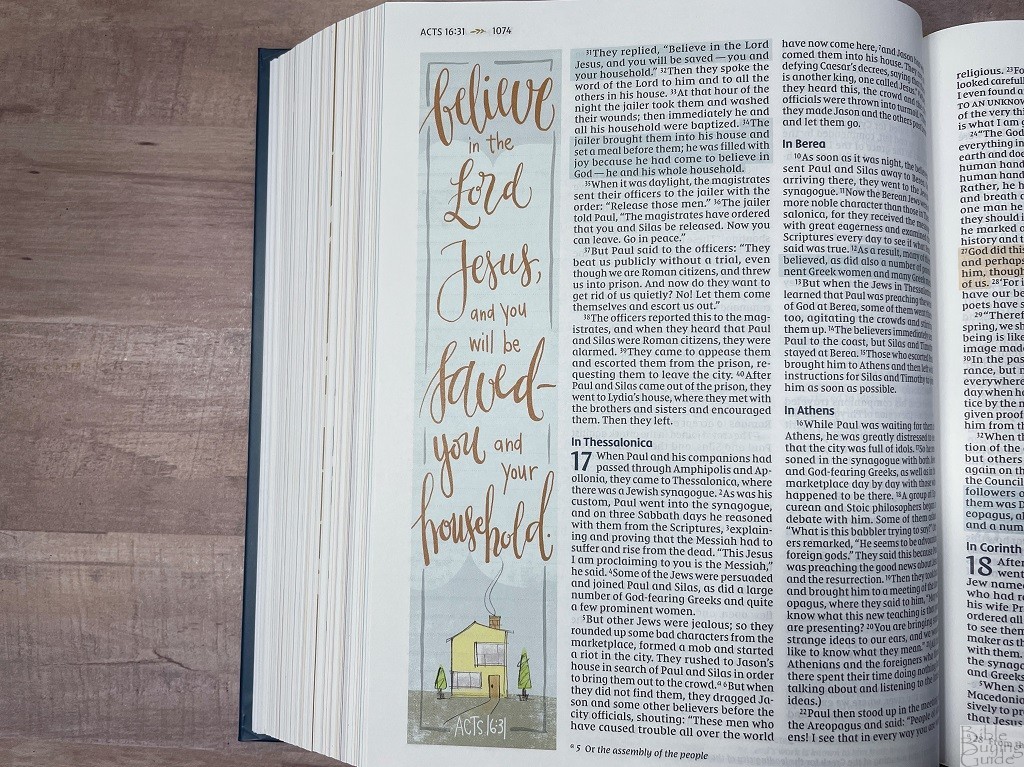 ACTS 16:31 1074
believe
in the
Lord
Jesus,
and you
will be
saved—
you and
your
household.
ACTS 16:31
31They replied, “Believe in the Lord
Jesus, and you will be saved — you and
your household.” 32Then they spoke the
word of the Lord to him and to all the
others in his house. 33At that hour of the
night the jailer took them and washed
their wounds; then immediately he and
all his household were baptized. 34The
jailer brought them into his house and
set a meal before them; he was filled with
joy because he had come to believe in
God — he and his whole household.
35When it was daylight, the magistrates
sent their officers to the jailer with the
order: “Release those men.” 36The jailer
told Paul, “The magistrates have ordered
that you and Silas be released. Now you
can leave. Go in peace.”
37But Paul said to the officers: “They
beat us publicly without a trial, even
though we are Roman citizens, and threw
us into prison. And now do they want to
get rid of us quietly? No! Let them come
themselves and escort us out.”
38The officers reported this to the mag-
istrates, and when they heard that Paul
and Silas were Roman citizens, they were
alarmed. 39They came to appease them
and escorted them from the prison, re-
questing them to leave the city. 40After
Paul and Silas came out of the prison, they
went to Lydia’s house, where they met with
the brothers and sisters and encouraged
them. Then they left.
In Thessalonica
17 When Paul and his companions had
passed through Amphipolis and Ap-
ollonia, they came to Thessalonica, where
there was a Jewish synagogue. 2As was his
custom, Paul went into the synagogue,
and on three Sabbath days he reasoned
with them from the Scriptures, 3explain-
ing and proving that the Messiah had to
suffer and rise from the dead. “This Jesus
I am proclaiming to you is the Messiah,”
he said. 4Some of the Jews were persuaded
and joined Paul and Silas, as did a large
number of God-fearing Greeks and quite
a few prominent women.
5But other Jews were jealous; so they
rounded up some bad characters from the
marketplace, formed a mob and started
a riot in the city. They rushed to Jason’s
house in search of Paul and Silas in order
to bring them out to the crowd.a 6But when
they did not find them, they dragged Ja-
son and some other believers before the
city officials, shouting: “These men who
have caused trouble all over the world
a 5 Or the assembly of the people
have now come here, 7and Jason
comed them into his house. They
defying Caesar’s decrees, saying
is another king, one called Jesus.”
they heard this, the crowd and
officials were thrown into turmoil.
they made Jason and the others post
and let them go.
In Berea
10As soon as it was night, the
sent Paul and Silas away to Berea.
arriving there, they went to the
synagogue. 11Now the Berean Jews were
more noble character than those in
salonica, for they received the
with great eagerness and examined
Scriptures every day to see if what
said was true. 12As a result, many of
believed, as did also a number of
nent Greek women and many Greek
13But when the Jews in Thessalonica
learned that Paul was preaching the
of God at Berea, some of them went
too, agitating the crowds and stirring
them up. 14The believers immediately
Paul to the coast, but Silas and Timothy
stayed at Berea. 15Those who escorted
brought him to Athens and then left
instructions for Silas and Timothy to
him as soon as possible.
In Athens
16While Paul was waiting for them
Athens, he was greatly distressed to
that the city was full of idols. 17So he
soned in the synagogue with both
and God-fearing Greeks, as well as in
marketplace day by day with those who
happened to be there. 18A group of
curean and Stoic philosophers began
debate with him. Some of them
“What is this babbler trying to say?”
ers remarked, “He seems to be
foreign gods.” They said this because
was preaching the good news about
and the resurrection. 19Then they took
and brought him to a meeting of the
opagus, where they said to him, “May
know what this new teaching is that
are presenting? 20You are bringing
strange ideas to our ears, and we
like to know what they mean.”
Athenians and the foreigners who
there spent their time doing nothing
talking about and listening to the
ideas.)
22Paul then stood up in the
the Areopagus and said: “People of
ens! I see that in every way you
religious. 23
looked carefully
I even found a
TO AN UNKNOW
of the very
is what I am
24“The God
everything in
earth and
human hand
human hand
Rather, he
and breath
one man he
they should
he marked
history and
27God did this
and perhaps
him, though
of us. 28‘For
have our
poets have
29“Therefore
spring, we
being is like
image made
30In the past
rance, but
everywhere
day when
tice by the
given proof
him from the
32When
tion of the
but others
again on the
the Council
followers
them was
eopagus,
and a num
In Corinth
18 After
went
Jew named
who had
his wife
ordered all
to see them
maker as
with them.
the synagogue
and Greeks
5When
Macedonia
sively to
that Jesus
Bible
Buying
Guide